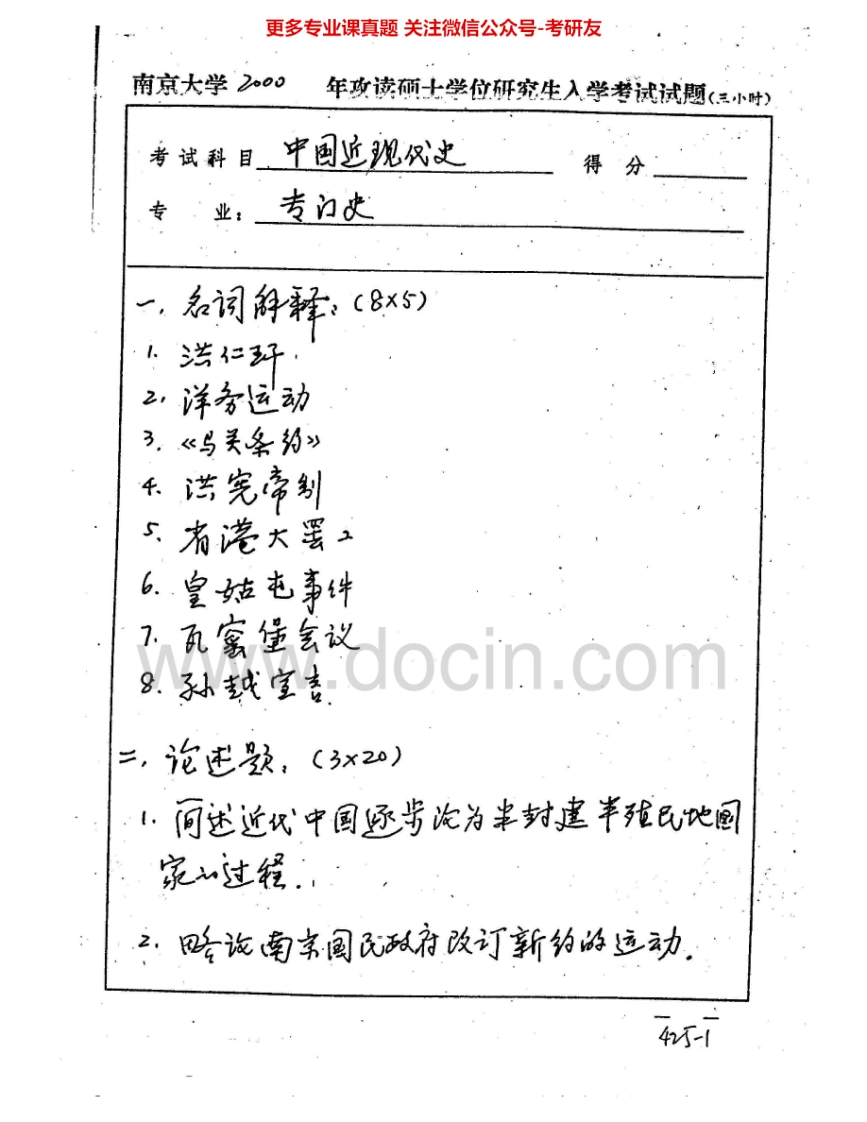 更多专业课真题 关注微信公众号-考研友
南京大学 2000 年攻读硕士学位研究生入学考试试题(三小时)
考试科目 中国近现代史 得分
专 业: 专门史
一、名词解释:(8×5)
1. 洪仁玕.
2. 洋务运动
3. 《马关条约》
4. 洪宪帝制
5. 省港大罢工
6. 皇姑屯事件
7. 瓦窑堡会议
8. 孙越宣言.
www.docin.com
二、论述题:(3×20)
1. 简述近代中国逐步沦为半封建半殖民地国
家的过程.
2. 略论南京国民政府改订新约的运动.
425-1